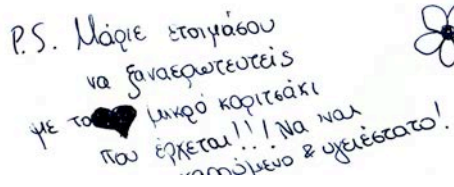 P.S. Μάριε ετοιμάσου
να ξαναερωτευτείς
με το μικρό κοριτσάκι
που έρχεται!!! Να ναι
& υγειέστατο!